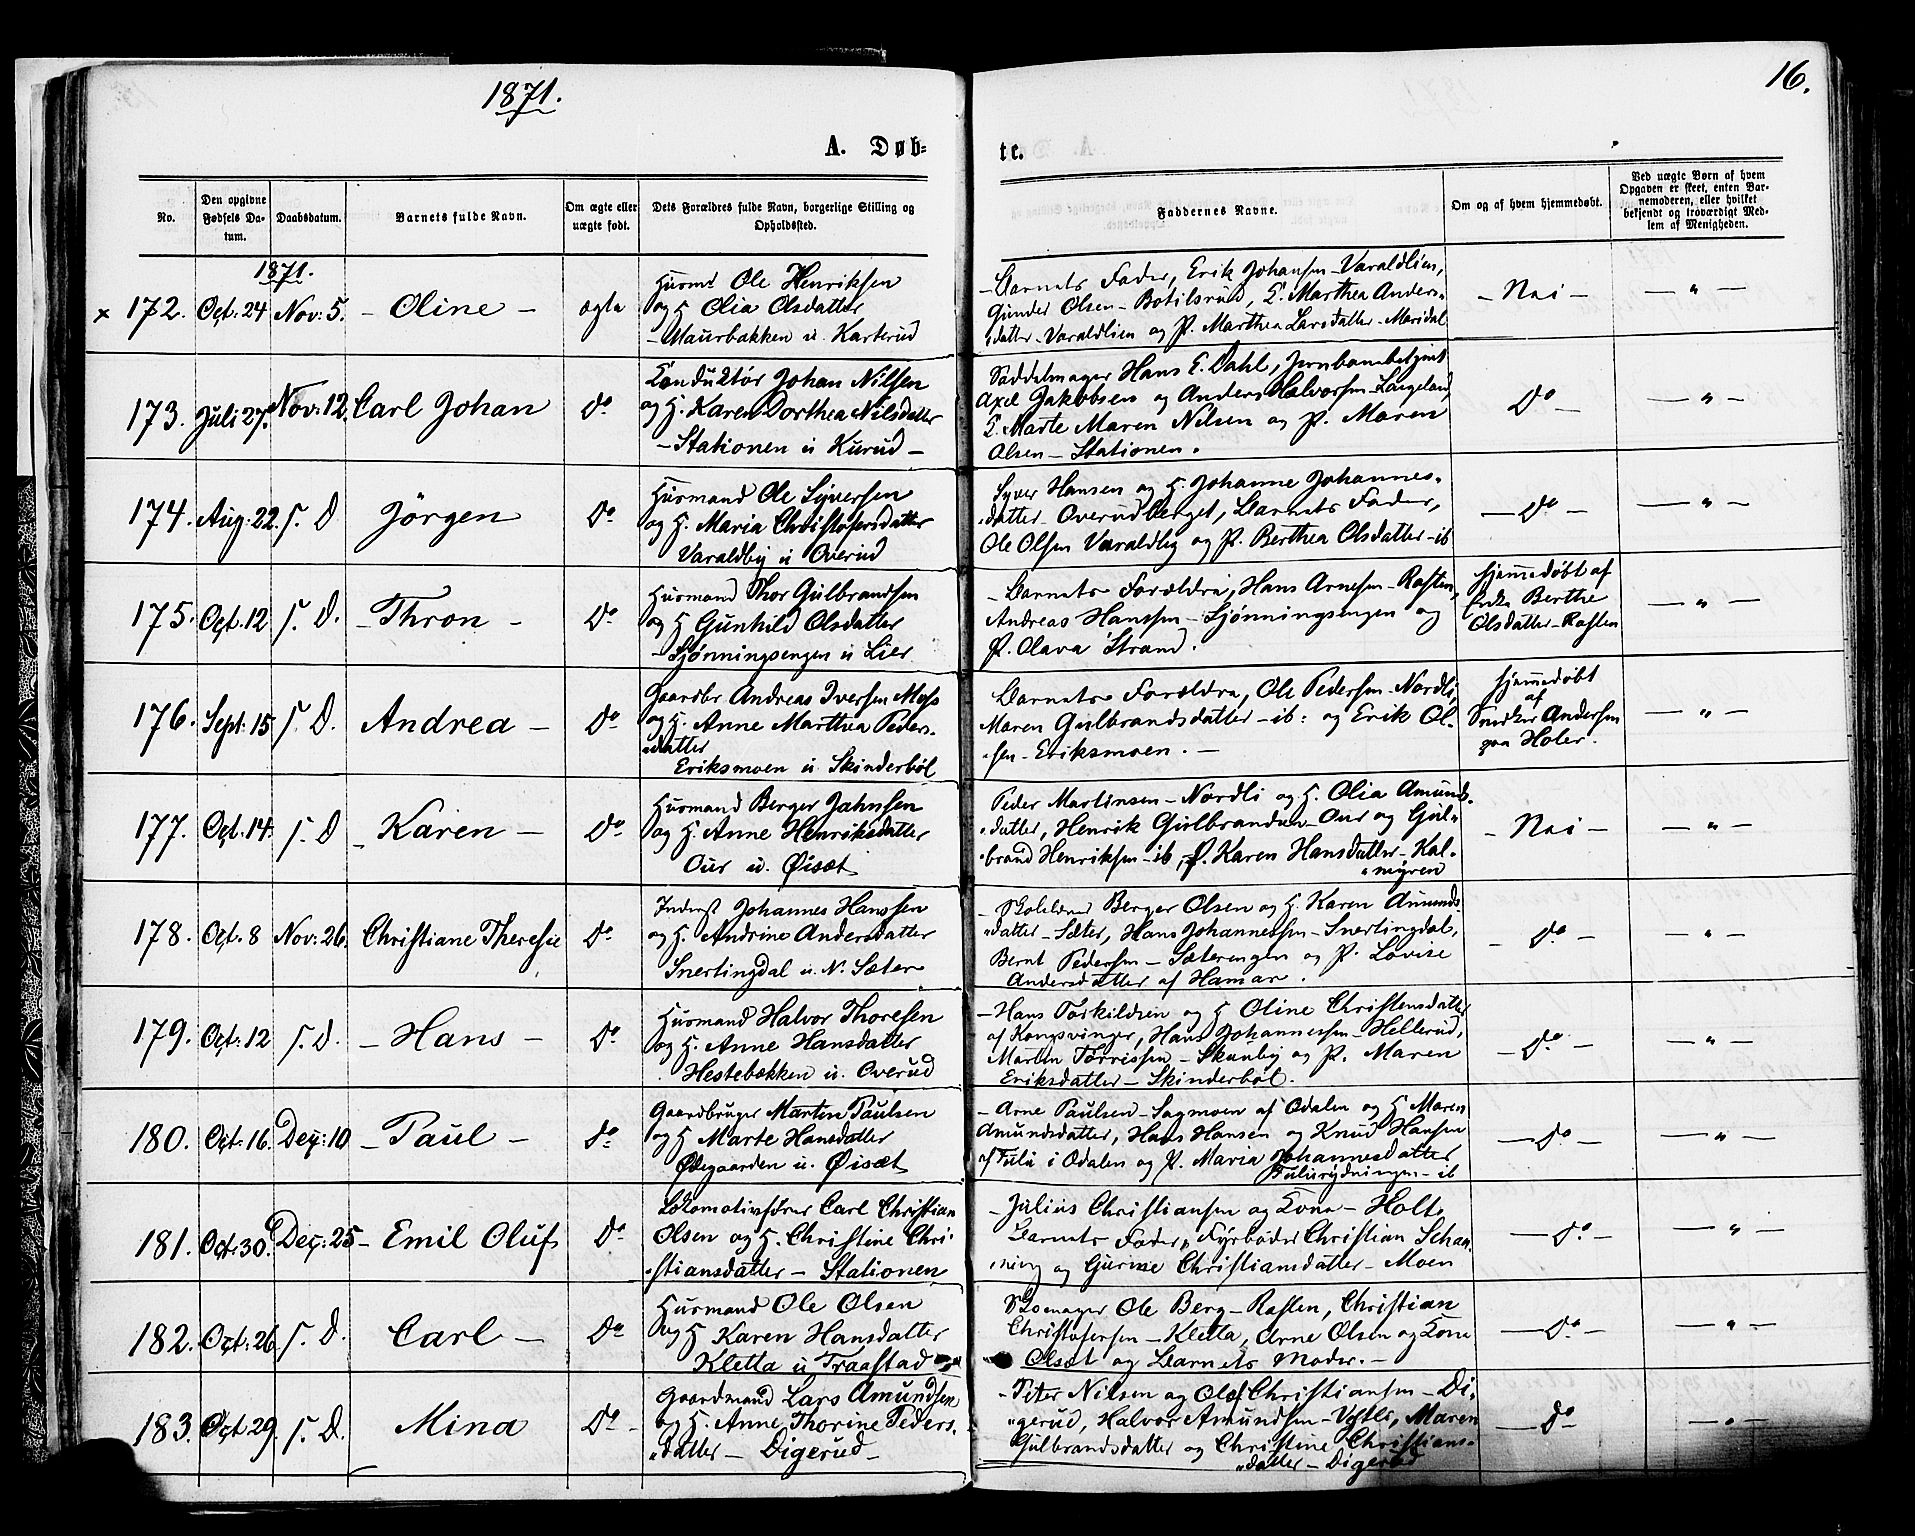 1871.
16.
A. Døb=
te.
No.
Den opgivne Fødsels Datum.
Daabsdatum.
Barnets fulde Navn.
Om ægte eller uægte født.
Dets Forældres fulde Navn, borgerlige Stilling og Opholdssted.
Faddernes Navne.
Om og af hvem hjemmedøbt.
Ved uægte Børn af hvem Opgaven er skeet, enten Barnemoderen, eller hvilket bekjendt og troværdigt Medlem af Menigheden.
1871.
x 172. Oct: 24 Nov: 5. - Oline - ægte
Husmd Ole Henriksen
og H. Olia Olsdatter
- Maurbakken u. Karterud
- Barnets Fader, Erik Johansen - Varaldlien,
Gunder Olsen - Botilsrud, E. Marthea Anders-
datter - Varaldlien og P. Marthea Larsdatter - Maridal
- Nei - - " -
173. Juli 27. Nov: 12. Carl Johan Do
Conduktør Johan Nilsen
og H. Karen Dorthea Nilsdatter
- Stationen u Kurud -
Saddelmager Hans E. Dahl, Jernbanebetjent
Axel Jakobsen og Anders Halvorsen - Langeland,
E. Marte Maren Nilsen og P. Maren
Olsen - Stationen.
Do - - " -
174. Aug: 22. S. D Jörgen Do
Husmand Ole Syversen
og H. Maria Christofersdatter
Varaldby u Overud
Syver Hansen og H. Johanne Johannes-
datter - Overudberget, Barnets Fader,
Ole Olsen Varaldby og P. Berthea Olsdatter - ib
- Do - - " -
175. Oct. 12 S. D. - Thron - Do
Husmand Thor Gulbrandsen
og H Gunhild Olsdatter
- Sjønningsengen u Lier
- Barnets Forældre, Hans Arnesen - Rasten,
Andreas Hanssen - Sjønningsengen og
P. Olava Strand.
Hjemmedøbt af
Enke Berthe
Olsdatter - Rasten
- " -
176. Sept: 15 S. D. Andrea - Do
Gaardbr Andreas Iversen Moss
og H. Anne Marthea Peders-
datter
Eriksmoen u. Skinderböl
Barnets Forældre, Ole Pedersen - Nordli,
Maren Gulbrandsdatter - ib: og Erik Ol-
sen - Eriksmoen. -
Hjemmedøbt
af
Andersen
paa Holer.
- " -
177. Oct. 14. S. D - Karen - Do
Husmand Berger Jahnsen
og H. Anne Henriksdatter
Our u. Øisæt
Peder Martinsen - Nordli og H. Olia Amunds-
datter, Henrik Gulbrandsen - Our og Gul-
brand Henriksen - ib, P. Karen Hansdatter - Kal-
myren
- Nei - - " -
178. Oct. 8 Nov: 26. Christiane Theresie Do
Inderst Johannes Hanssen
og H. Andrine Andersdatter
Snertingdal u. N. Sæter
Berger Olsen og H. Karen Amunds-
datter - Sæter, Hans Johannessen - Snertingdal,
Bernt Pedersen - Sæterengen og P. Lovise
Andersdatter af Hamar.
- Do - - " -
179. Oct: 12 S. D. - Hans - Do
Husmand Halvor Thoresen
og H. Anne Hansdatter
Hestebækken u. Overud
- Hans Torkildsen og H Oline Christensdatter
af Kongsvinger, Hans Johannessen - Hellerud,
Martin Torrissen - Skanby og P. Maren
Eriksdatter - Skinderböl.
- Do - - " -
180. Oct: 16. Dec: 10 - Paul - Do
Gaardbruger Martin Paulsen
og H Marte Hansdatter
Ødegaarden u. Øisæt
- Arne Paulsen - Sagmoen af Odalen og H Maren
Amundsdatter, Hans Hansen og Knud Hansen
af Fulu i Odalen og P. Maria Johannesdatter
Fulurydningen - ib
- Do - - " -
181. Oct: 30. Dec: 25 - Emil Oluf Do
Lokomotivfører Carl Christian
Olsen og H. Christine Chri-
stiansdatter - Stationen
- Julius Christiansen og Kone - Holt,
Barnets Fader, Fyrbøder Christian Schan-
ning og Gurine Christiansdatter - Moen
- Do - - " -
182. Oct: 26 S. D. Carl - Do
Husmand Ole Olsen
og H Karen Hansdatter
Kletta u Traastad
Skomager Ole Berg - Rasten, Christian
Christofersen - Kletta, Arne Olsen og Kone
Olset og Barnets Moder. -
- Do - - " -
183. Oct 29. S. D. Mina Do -
Gaardmand Lars Amundsen
og H. Anne Thorine Peders-
datter - Digerud -
- Peter Nilsen og Olaf Christiansen - Di-
gerud, Halvor Amundsen - , Maren
Gulbrandsdatter og Christine Christians-
datter - Digerud
- Do - - " -